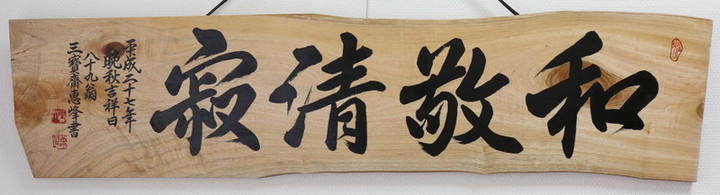 和敬清寂
平成二十七年
晩秋吉祥日
八十九翁
三寶齋惠峰書